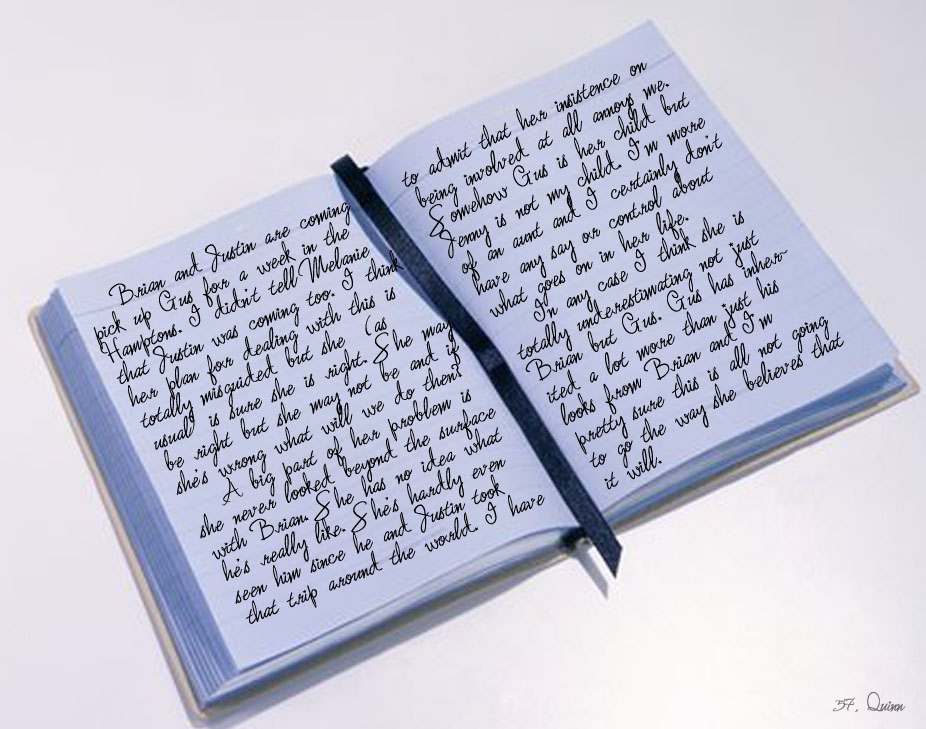 Brian and Justin are coming
pick up Gus for a week in the
Hamptons. I didn't tell Melanie
that Justin was coming too. I think
her plan for dealing with this is
totally misguided but she (as
usual) is sure she is right. She may
be right but she may not be and if
she's wrong what will we do then?
A big part of her problem is
she never looked beyond the surface
with Brian. She has no idea what
he's really like. She's hardly even
seen him since he and Justin took
that trip around the world. I have
to admit that her insistence on
being involved at all annoys me.
Somehow Gus is her child but
Jenny is not my child. I'm more
of an aunt and I certainly don't
have any say or control about
what goes on in her life.
In any case I think she is
totally underestimating not just
Brian but Gus. Gus has inher-
ited a lot more than just his
looks from Brian and I'm
pretty sure this is all not going
to go the way she believes that
it will.
57, Quinn